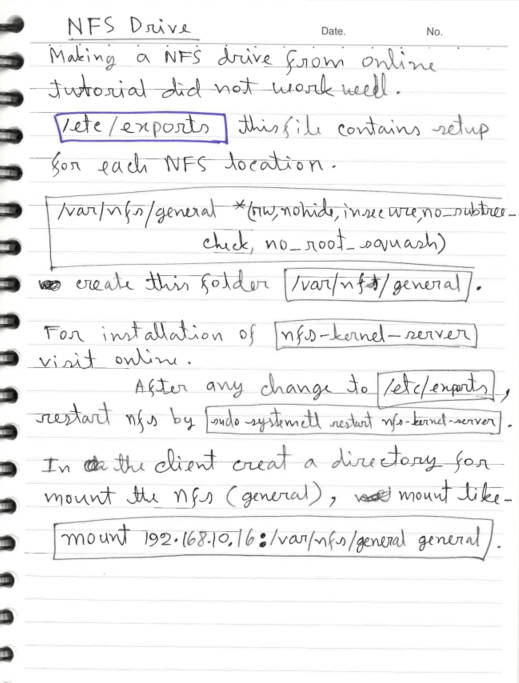 NFS Drive
Date. No.
Making a NFS drive from online
tutorial did not work well.
/etc/exports this file contains setup
for each NFS location.
/var/nfs/general *(rw,nohide,insecure,no_subtree_
check, no_root_squash)
create this folder /var/nfs/general.
For installation of nfs-kernel-server
visit online.
After any change to /etc/exports,
restart nfs by sudo systemctl restart nfs-kernel-server.
In the client creat a directory for
mount the nfs (general), mount like-
mount 192.168.10.16:/var/nfs/general general.